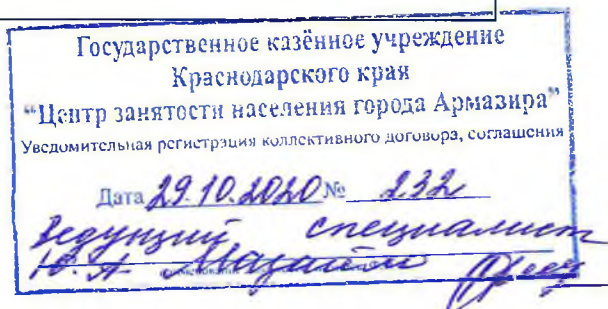 Государственное казённое учреждение
Краснодарского края
“Центр занятости населения города Армавира”
Уведомительная регистрация коллективного договора, соглашения
Дата 29.10.2020 № 232
Ведущий специалист
Ю.А.